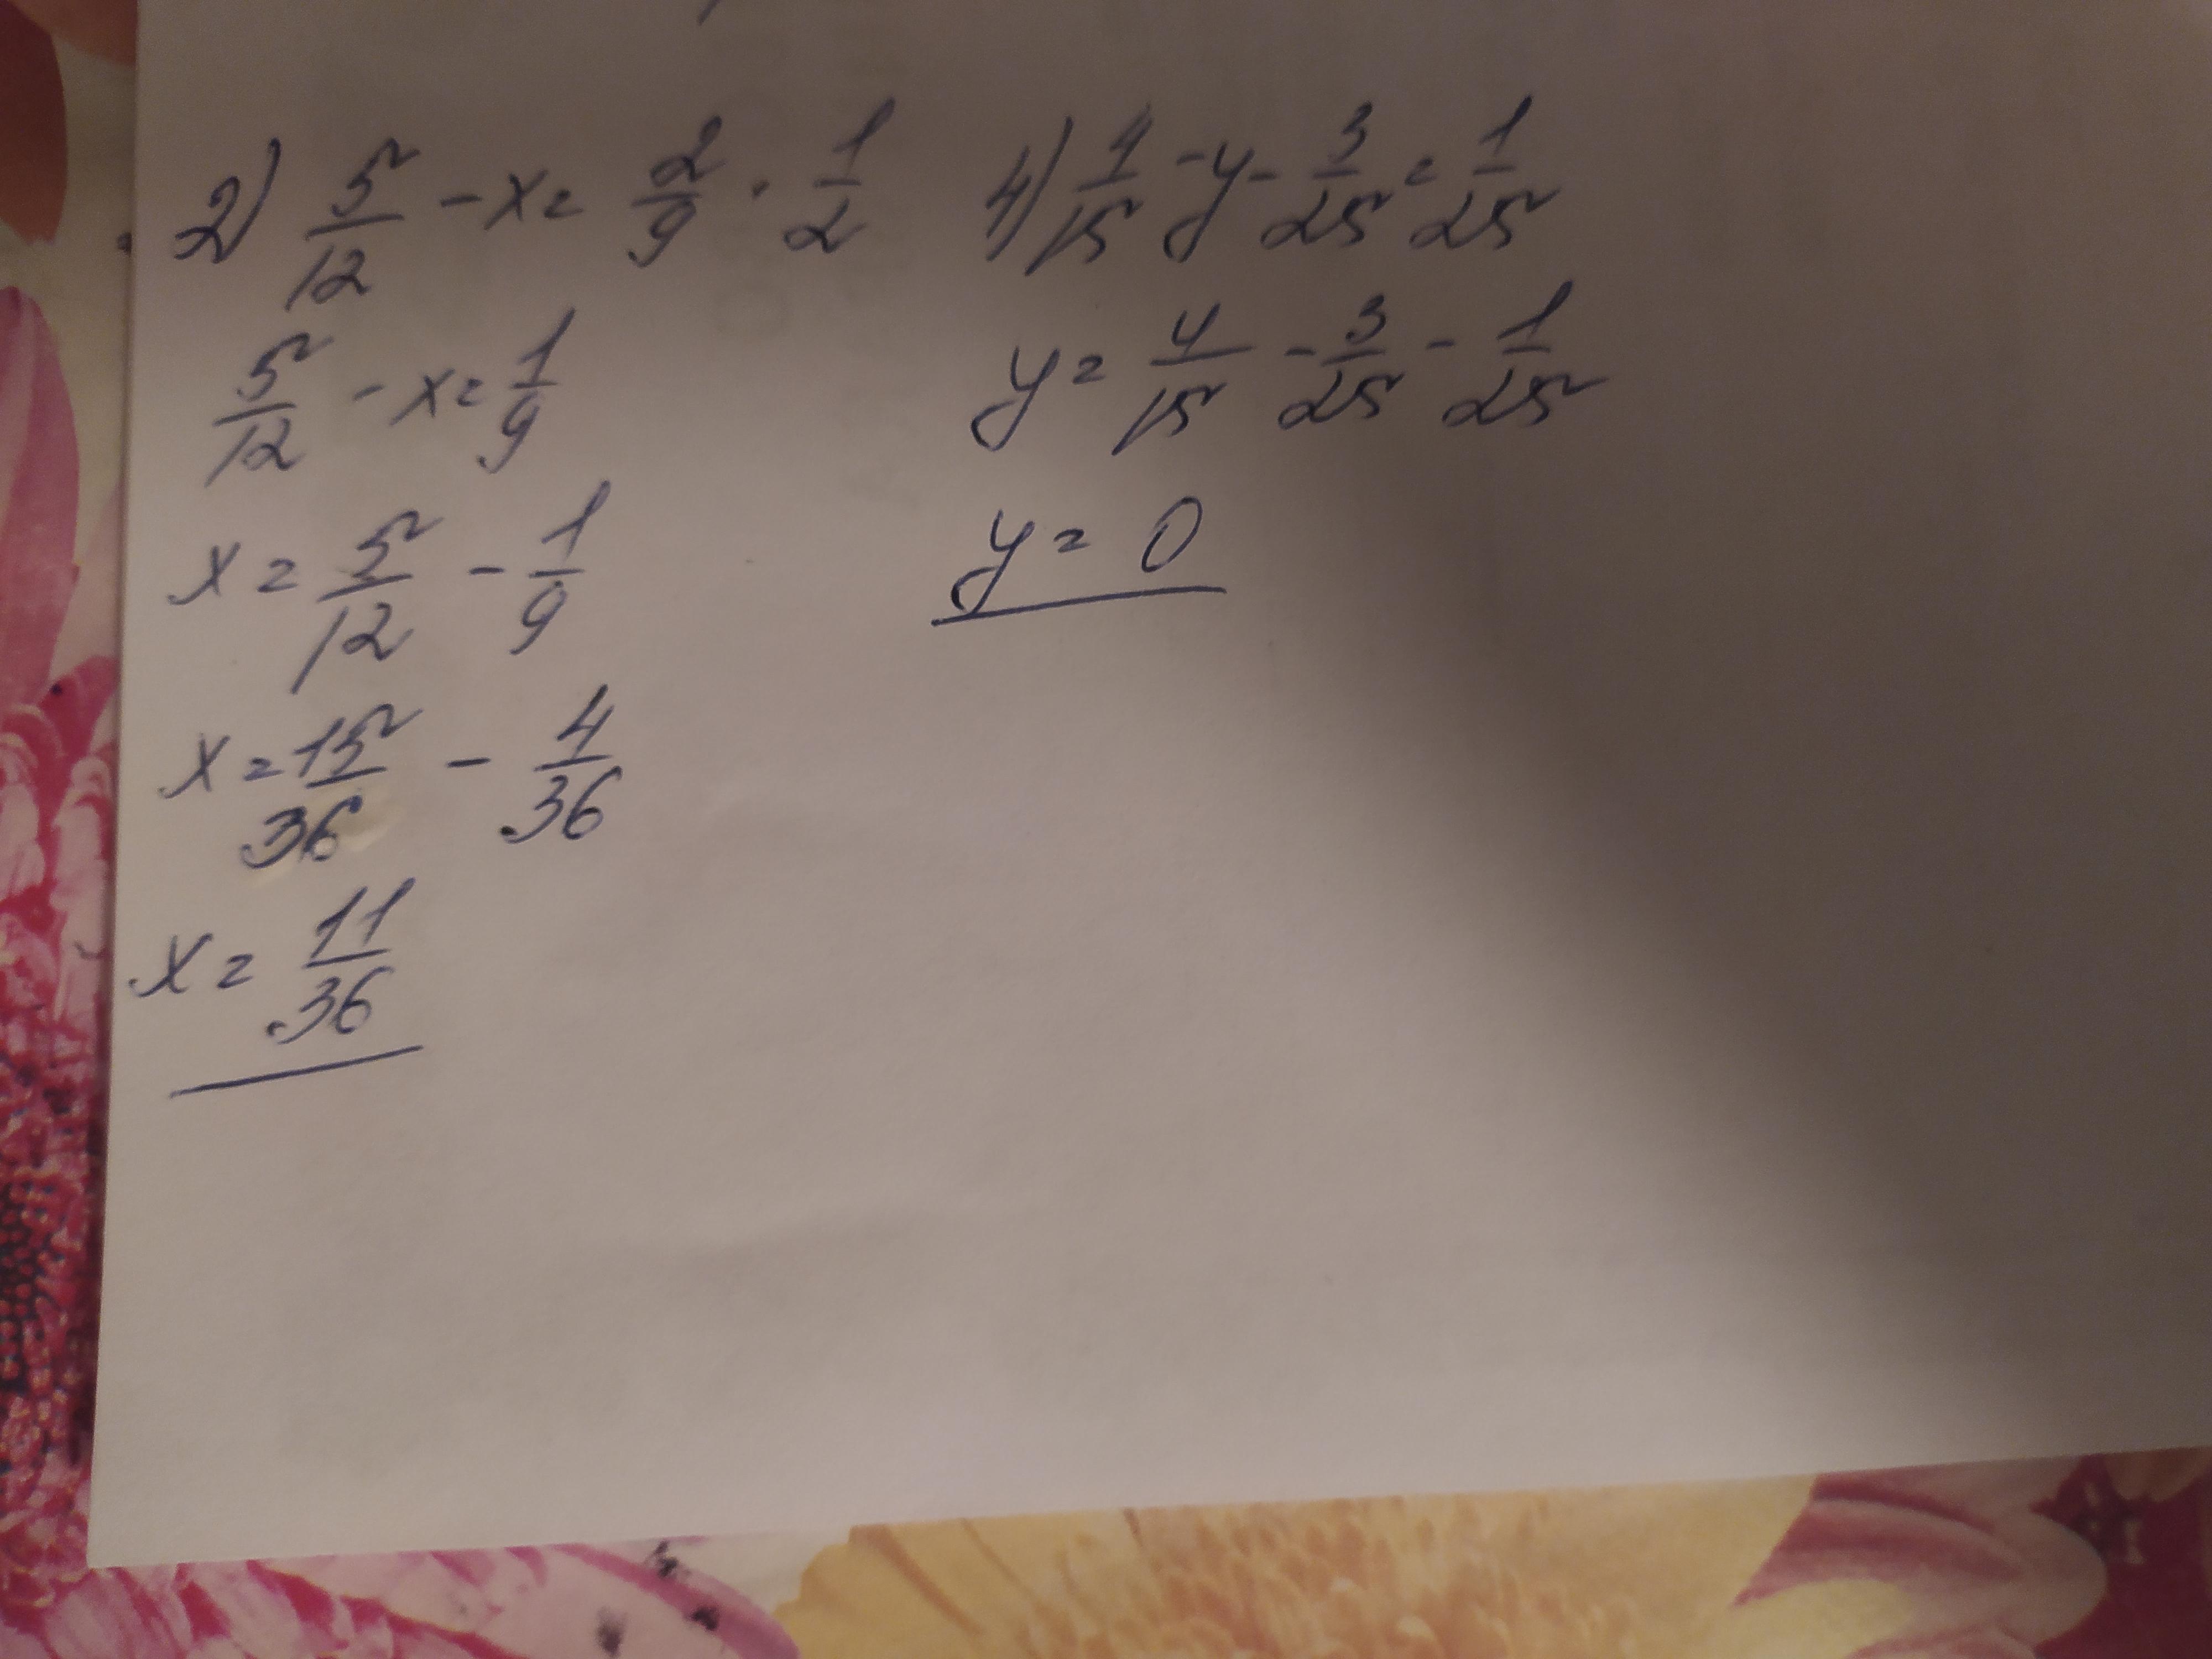 2) 5/12 - x = 2/9 · 1/2
5/12 - x = 1/9
x = 5/12 - 1/9
x = 15/36 - 4/36
x = 11/36
4) 4/15 - y - 3/25 = 1/25
y = 4/15 - 3/25 - 1/25
y = 0